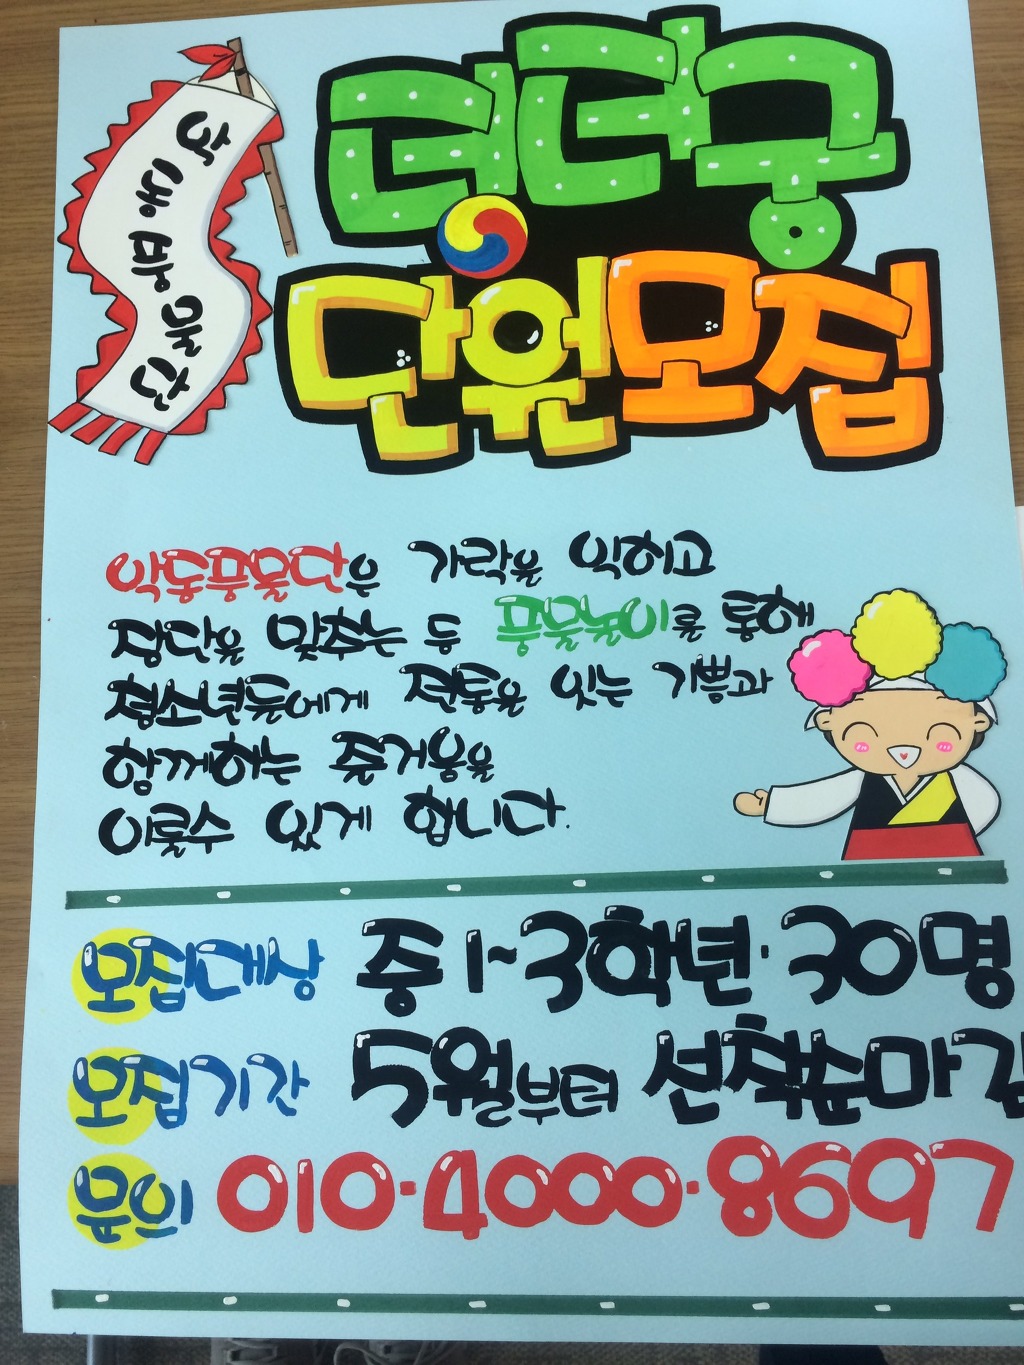 악동풍물단
덩더궁
단원모집
악동풍물단은 가락을 익히고
장단을 맞추는 등 풍물놀이를 통해
청소년들에게 전통을 잇는 기쁨과
함께하는 즐거움을
이룰수 있게 합니다.
모집대상 중1~3학년·30명
모집기간 5월부터 선착순마감
문의 010·4000·8697